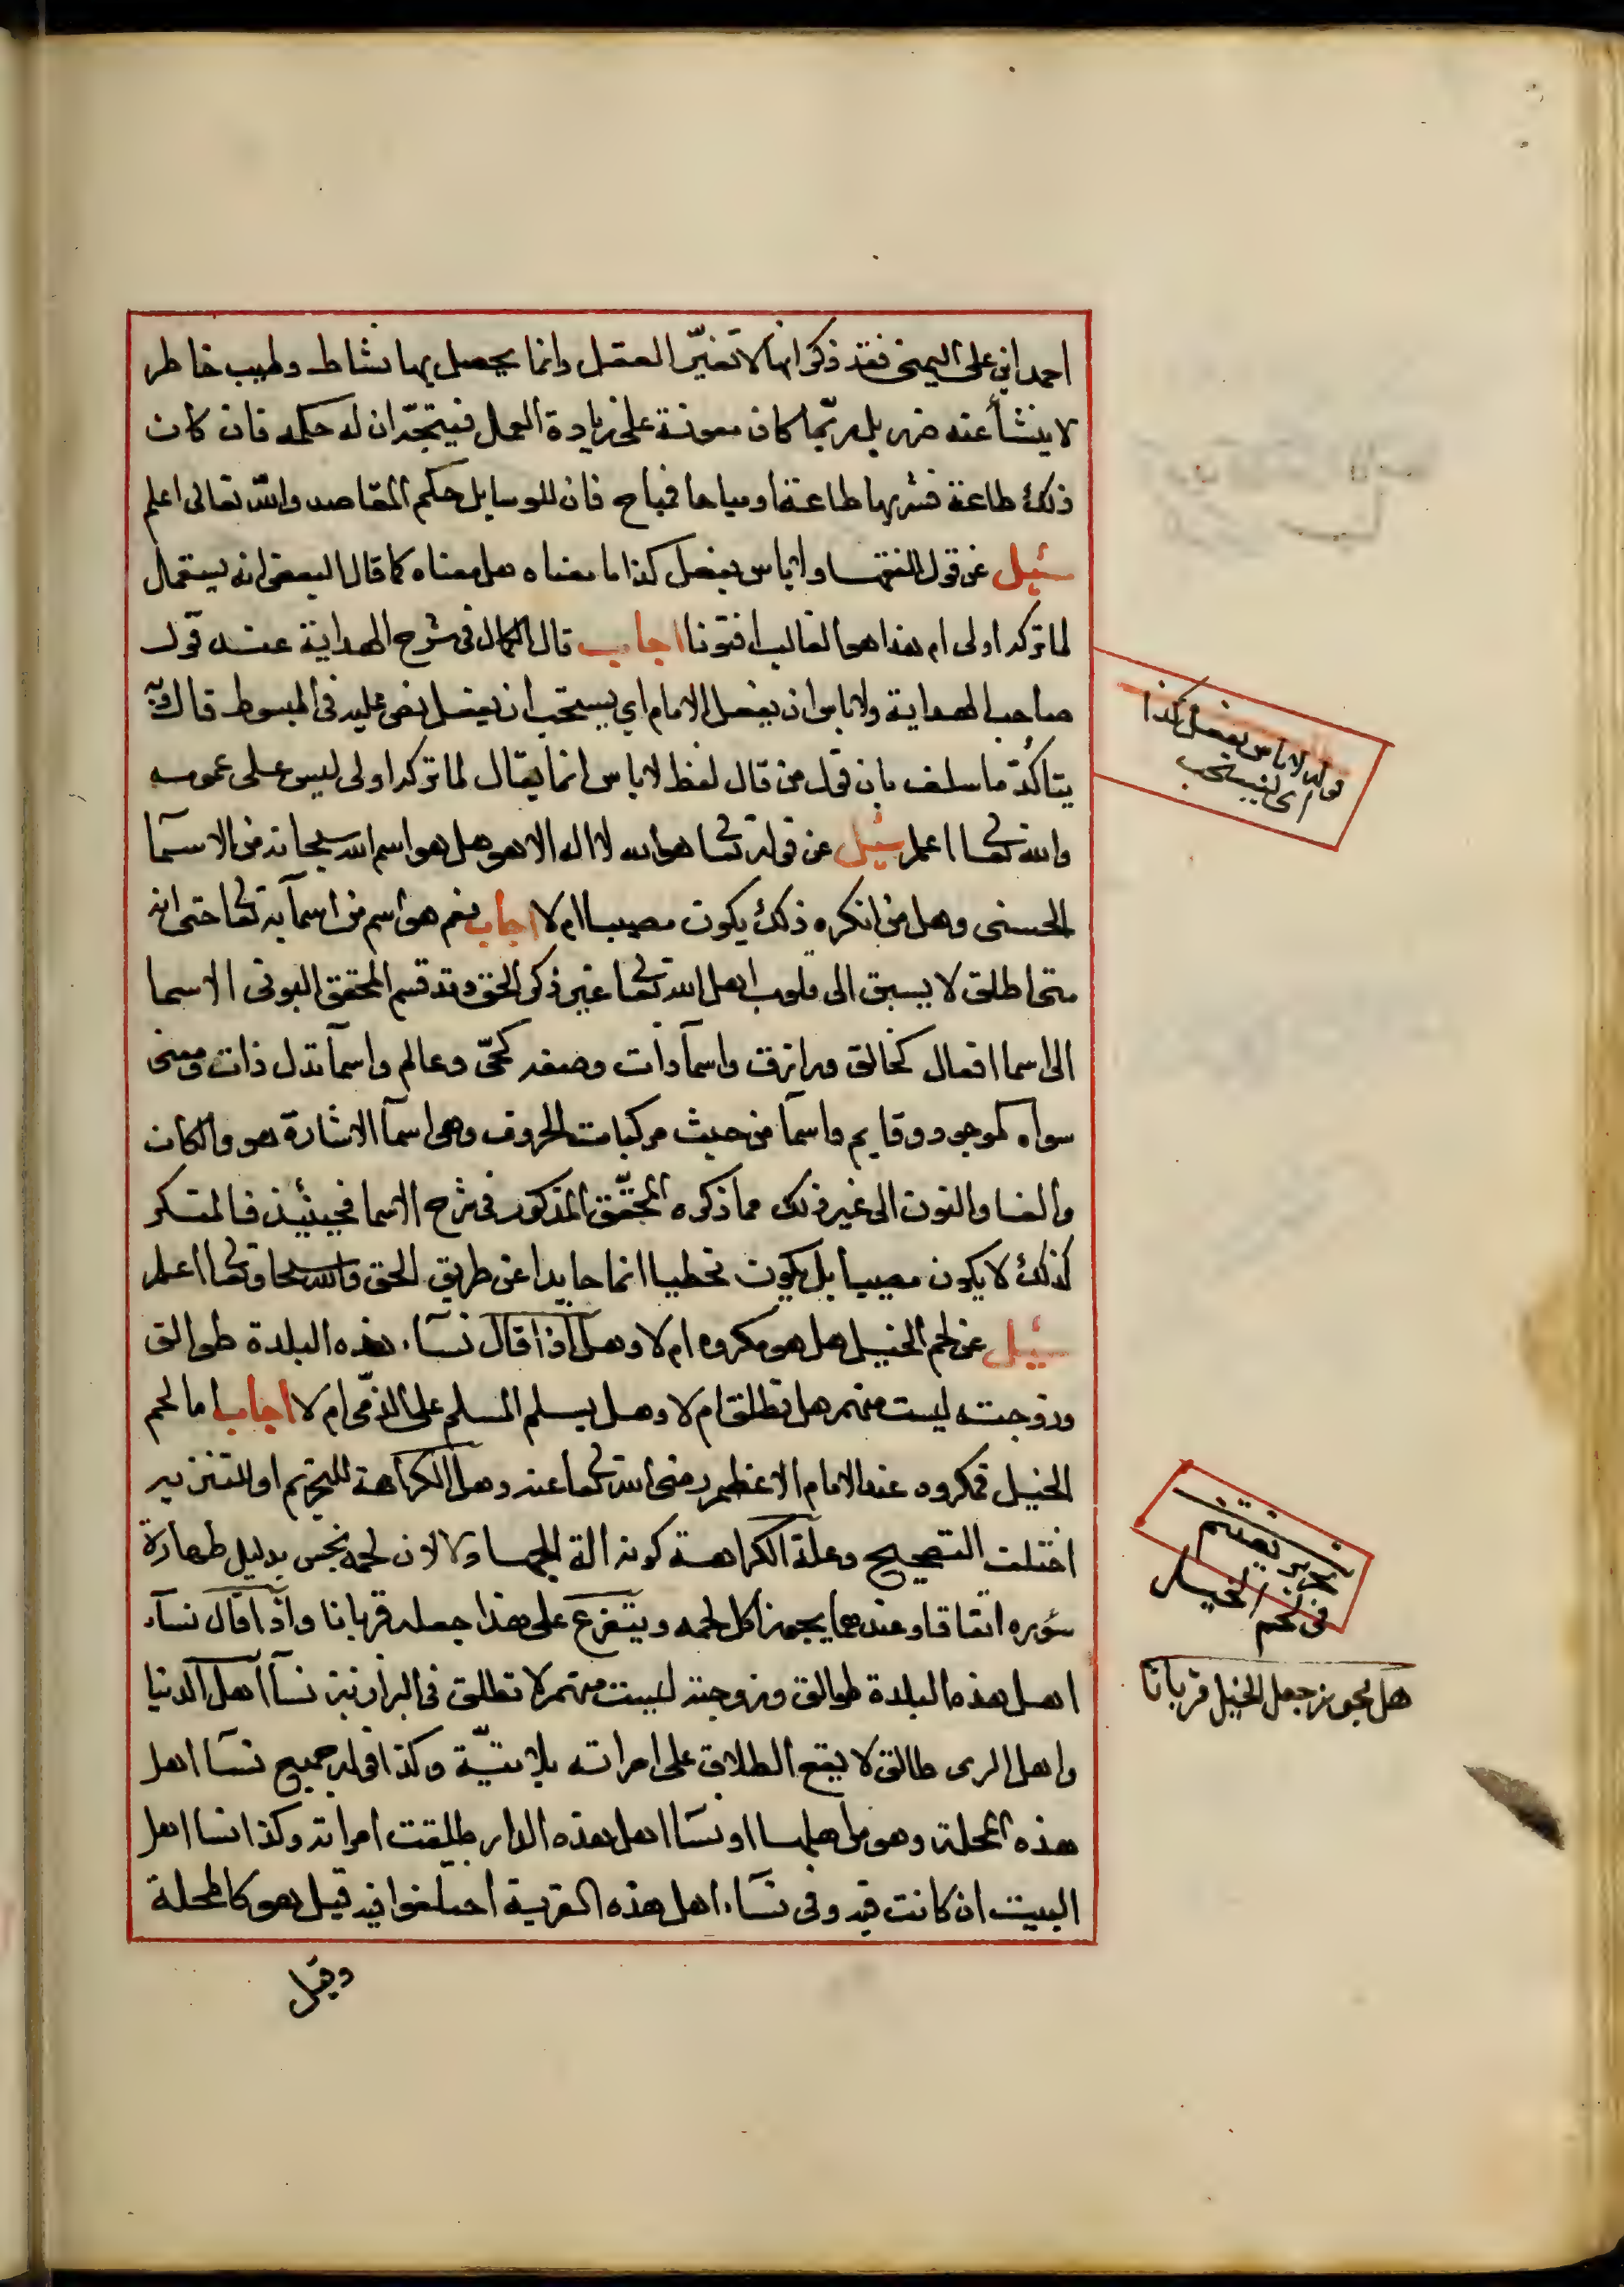 احمد ابي على اليمني فقد ذكر انها لا تغيّر العقل وانما يحصل بها نشاط وطيب خاطر
لا ينشأ عنه ضرر بل ربّما كان معونة على زيادة العمل فيتجه ان له حكمه فان كان
ذلك طاعة فشربها طاعة او مباحا فمباح فان للوسايل حكم المقاصد والله تعالى اعلم
سئيل عن قول الفقها ولا باس بفعل كذا ما معناه هل معناه كما قال البعض انه يستعمل
لما تركه اولى ام هذا هو الغالب افتونا اجاب قال الكمال في شرح الهداية عند قول
صاحب الهداية ولا باس ان يفعل الامام اي يستحب ان يفعل نص عليه في المبسوط قال
يتأكد ما سلف بان قول من قال لفظ لا باس انما يقال لما تركه اولى ليس على عمومه
والله تعا اعلم سئيل عن قوله تعا هو الله لا اله الا هو هل هو اسم الله سبحانه من الاسمآ
الحسنى وهل من انكره ذلك يكون مصيبا ام لا اجاب نعم هو اسم من اسمآيه تعا حتى انه
متى اطلق لا يسبق الى قلوب اهل الله تعا غير ذكر الحق وقد قسم المحقق البونى الاسما
الى اسما افعال كخالق ورازق واسمآ ذات وصفه كحىّ وعالم واسمآ تدل ذات ومعنى
سواه كموجود وقايم واسمآ من حيث مركبات الحروف وهى اسمآ الاشارة هو والكاف
والها والنون الى غير ذلك مما ذكره المحقّق المذكور فى شرح الاسما فحينئيذ فالمنكر
كذلك لا يكون مصيبا بل يكون مخطيا انما حايدا عن طريق الحق والله سبحا وتعا اعلم
سئيل عن لحم الخيل هل هو مكروه ام لا وهل اذا قال نسآء هذه البلدة طوالق
وزوجته ليست منهم هل تطلق ام لا وهل يسلم المسلم على الذمّى ام لا اجاب اما لحم
الخيل فمكروه عند الامام الاعظم رضى الله تعا عنه وهل الكراهة للتحريم او للتنزيه
اختلف التصحيح وعلة الكراهة كونه الة للجهاد لا لان لحمه نجس بدليل طهارة
سؤره اتفاقا وعندهما يجوز اكل لحمه ويتفرع على هذا جعله قربانا واذا قال نسآء
اهل هذه البلدة طوالق وزوجته ليست منهم لا تطلق فى البزازية نسآ اهل الدنيا
واهل الرى طالق لا يقع الطلاق على امراته بلا نيّة وكذا قوله جميع نسآ اهل
هذه المحلة وهو من اهلها او نسآ اهل هذه الدار طلقت امراته وكذا نسا اهل
البيت ان كانت فيه وفى نسآء اهل هذه القرية اختلفوا فيه قيل هو كالمحلة
وقيل
قوله لا باس بفعل كذا
اى يستحب
فى لحم الخيل
هل يجوز جعل الخيل قربانا